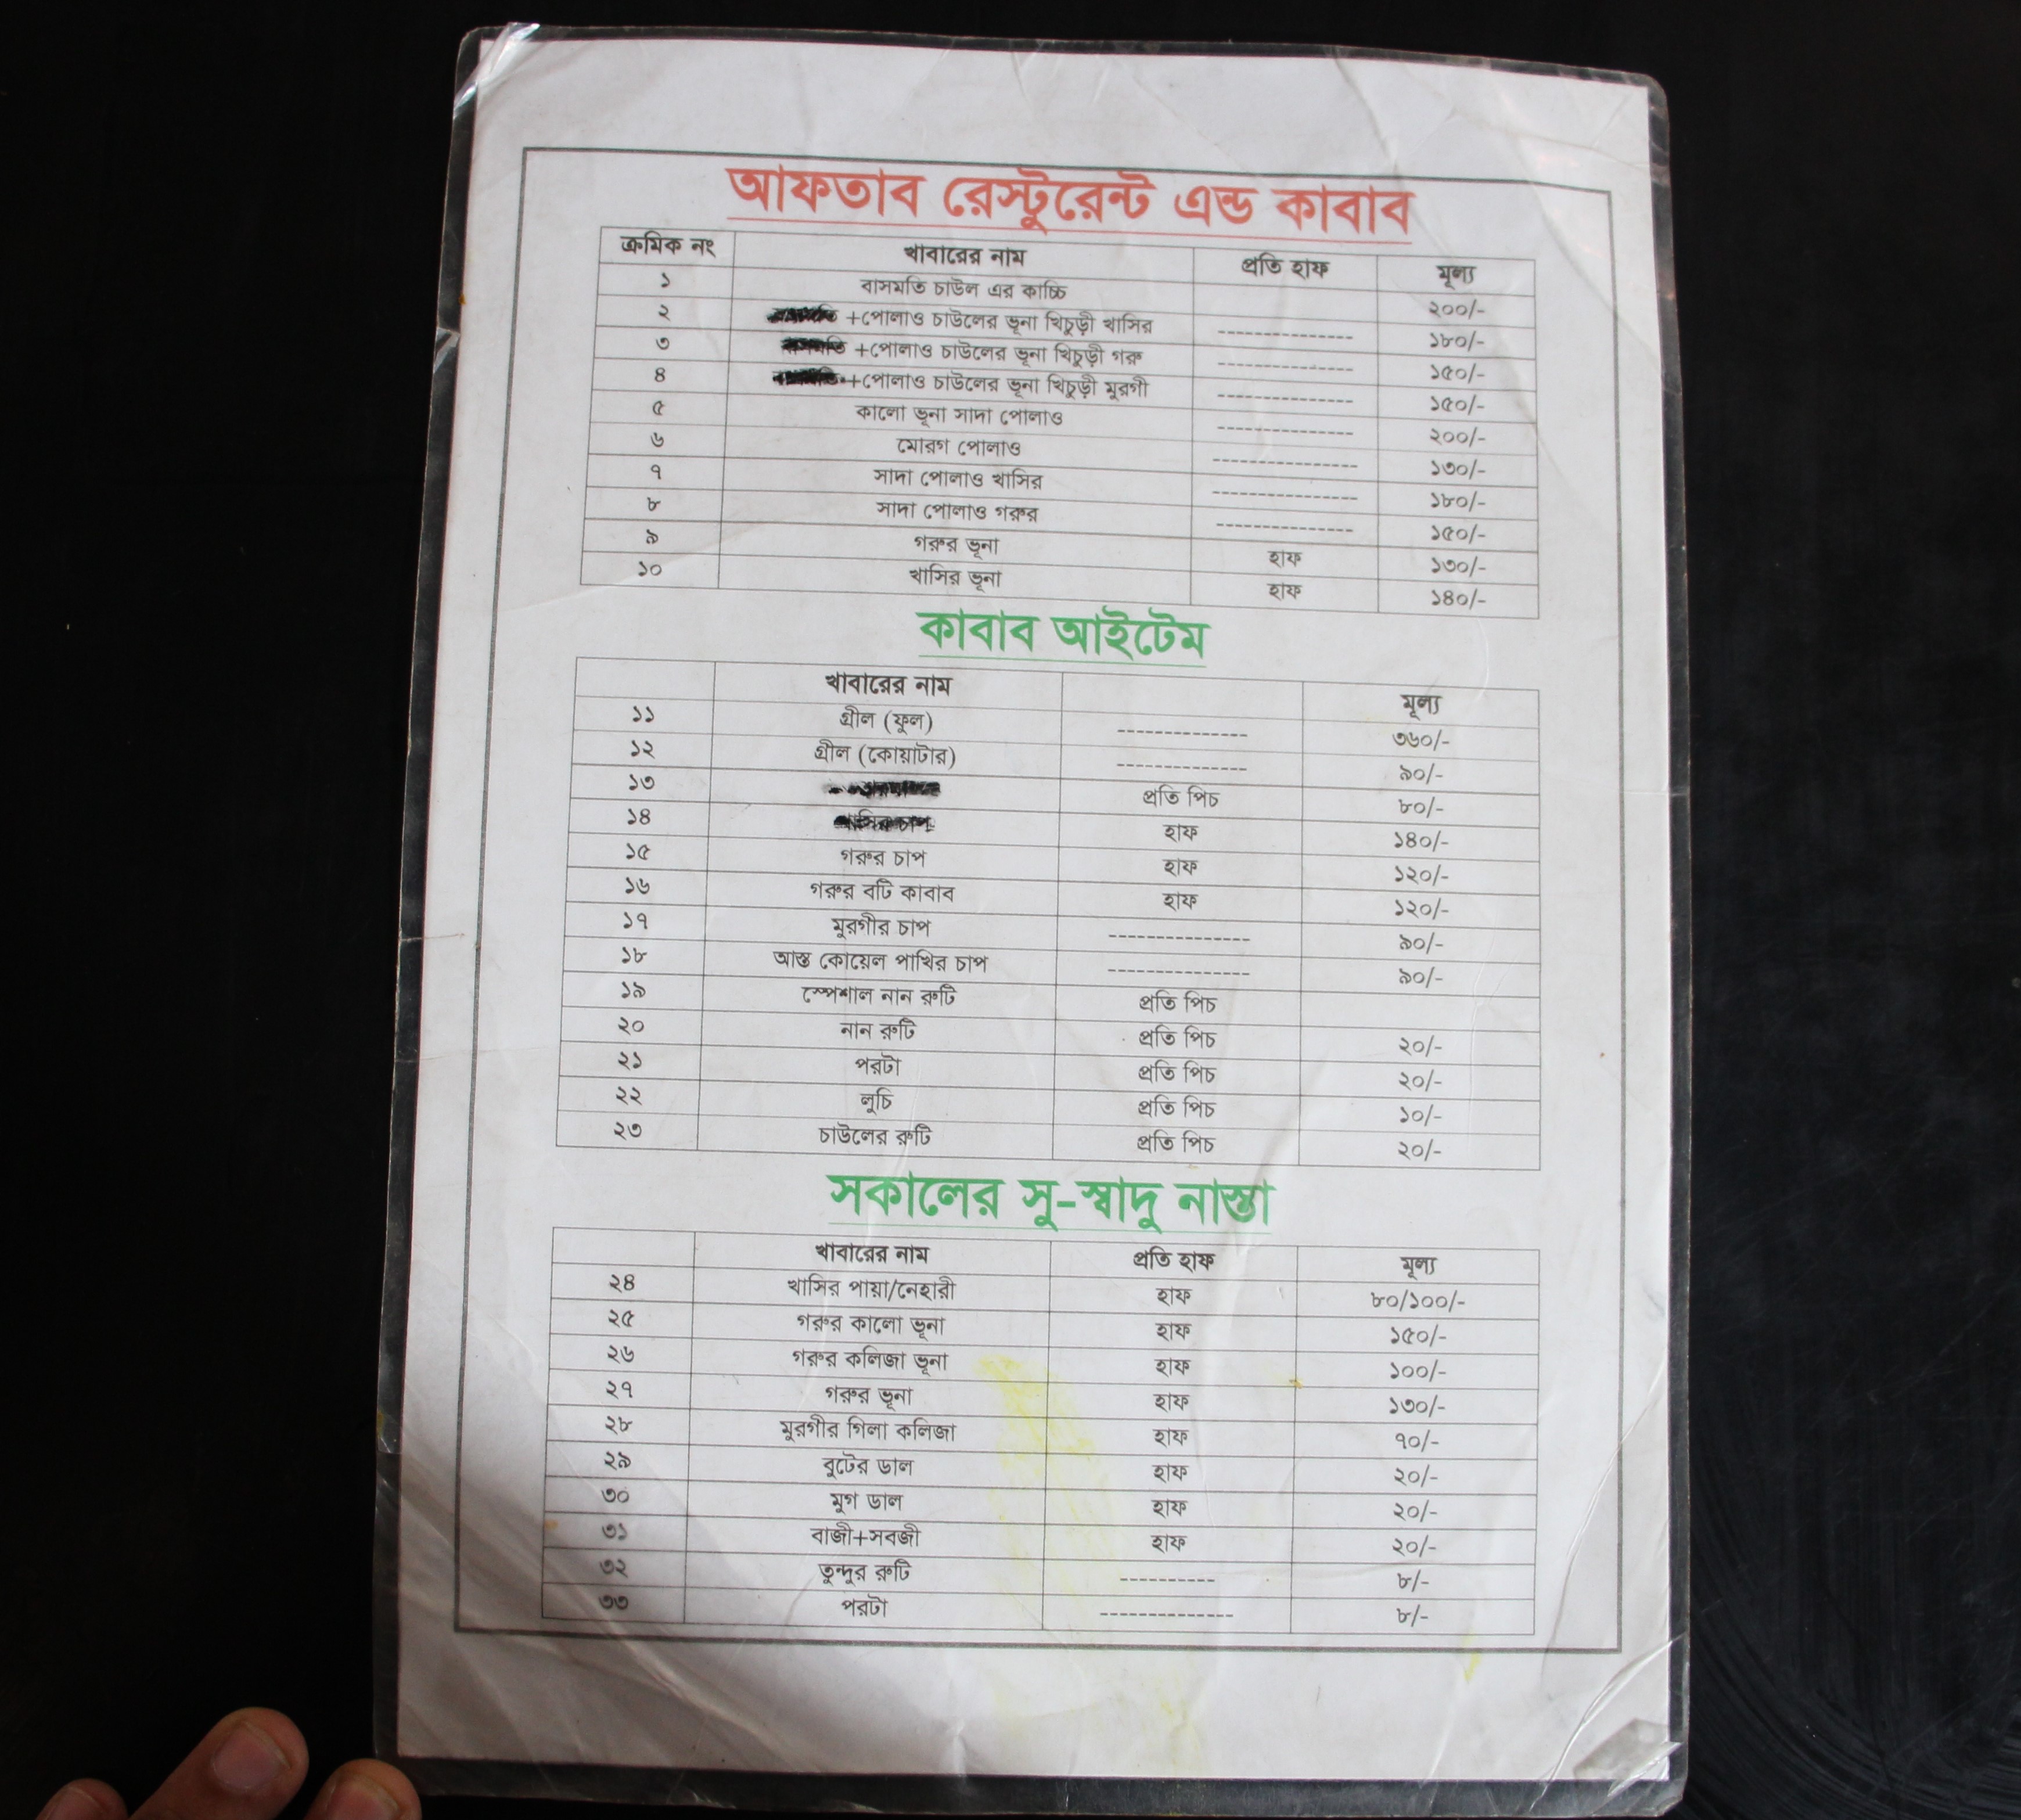 আফতাব রেস্টুরেন্ট এন্ড কাবাব
ক্রমিক নং খাবারের নাম প্রতি হাফ মূল্য
১ বাসমতি চাউল এর কাচ্চি ২০০/-
২ +পোলাও চাউলের ভূনা খিচুড়ী খাসির -------------- ১৮০/-
৩ +পোলাও চাউলের ভূনা খিচুড়ী গরু -------------- ১৫০/-
৪ +পোলাও চাউলের ভূনা খিচুড়ী মুরগী -------------- ১৫০/-
৫ কালো ভূনা সাদা পোলাও -------------- ২০০/-
৬ মোরগ পোলাও --------------- ১৩০/-
৭ সাদা পোলাও খাসির --------------- ১৮০/-
৮ সাদা পোলাও গরুর -------------- ১৫০/-
৯ গরুর ভূনা হাফ ১৩০/-
১০ খাসির ভূনা হাফ ১৪০/-
কাবাব আইটেম
খাবারের নাম মূল্য
১১ গ্রীল (ফুল) -------------- ৩৬০/-
১২ গ্রীল (কোয়াটার) -------------- ৯০/-
১৩ প্রতি পিচ ৮০/-
১৪ চাপ হাফ ১৪০/-
১৫ গরুর চাপ হাফ ১২০/-
১৬ গরুর বটি কাবাব হাফ ১২০/-
১৭ মুরগীর চাপ --------------- ৯০/-
১৮ আস্ত কোয়েল পাখির চাপ --------------- ৯০/-
১৯ স্পেশাল নান রুটি প্রতি পিচ
২০ নান রুটি প্রতি পিচ ২০/-
২১ পরটা প্রতি পিচ ২০/-
২২ লুচি প্রতি পিচ ১০/-
২৩ চাউলের রুটি প্রতি পিচ ২০/-
সকালের সু-স্বাদু নাস্তা
খাবারের নাম প্রতি হাফ মূল্য
২৪ খাসির পায়া/নেহারী হাফ ৮০/১০০/-
২৫ গরুর কালো ভূনা হাফ ১৫০/-
২৬ গরুর কলিজা ভূনা হাফ ১০০/-
২৭ গরুর ভূনা হাফ ১৩০/-
২৮ মুরগীর গিলা কলিজা হাফ ৭০/-
২৯ বুটের ডাল হাফ ২০/-
৩০ মুগ ডাল হাফ ২০/-
৩১ বাজী+সবজী হাফ ২০/-
৩২ তুন্দুর রুটি ---------- ৮/-
৩৩ পরটা -------------- ৮/-